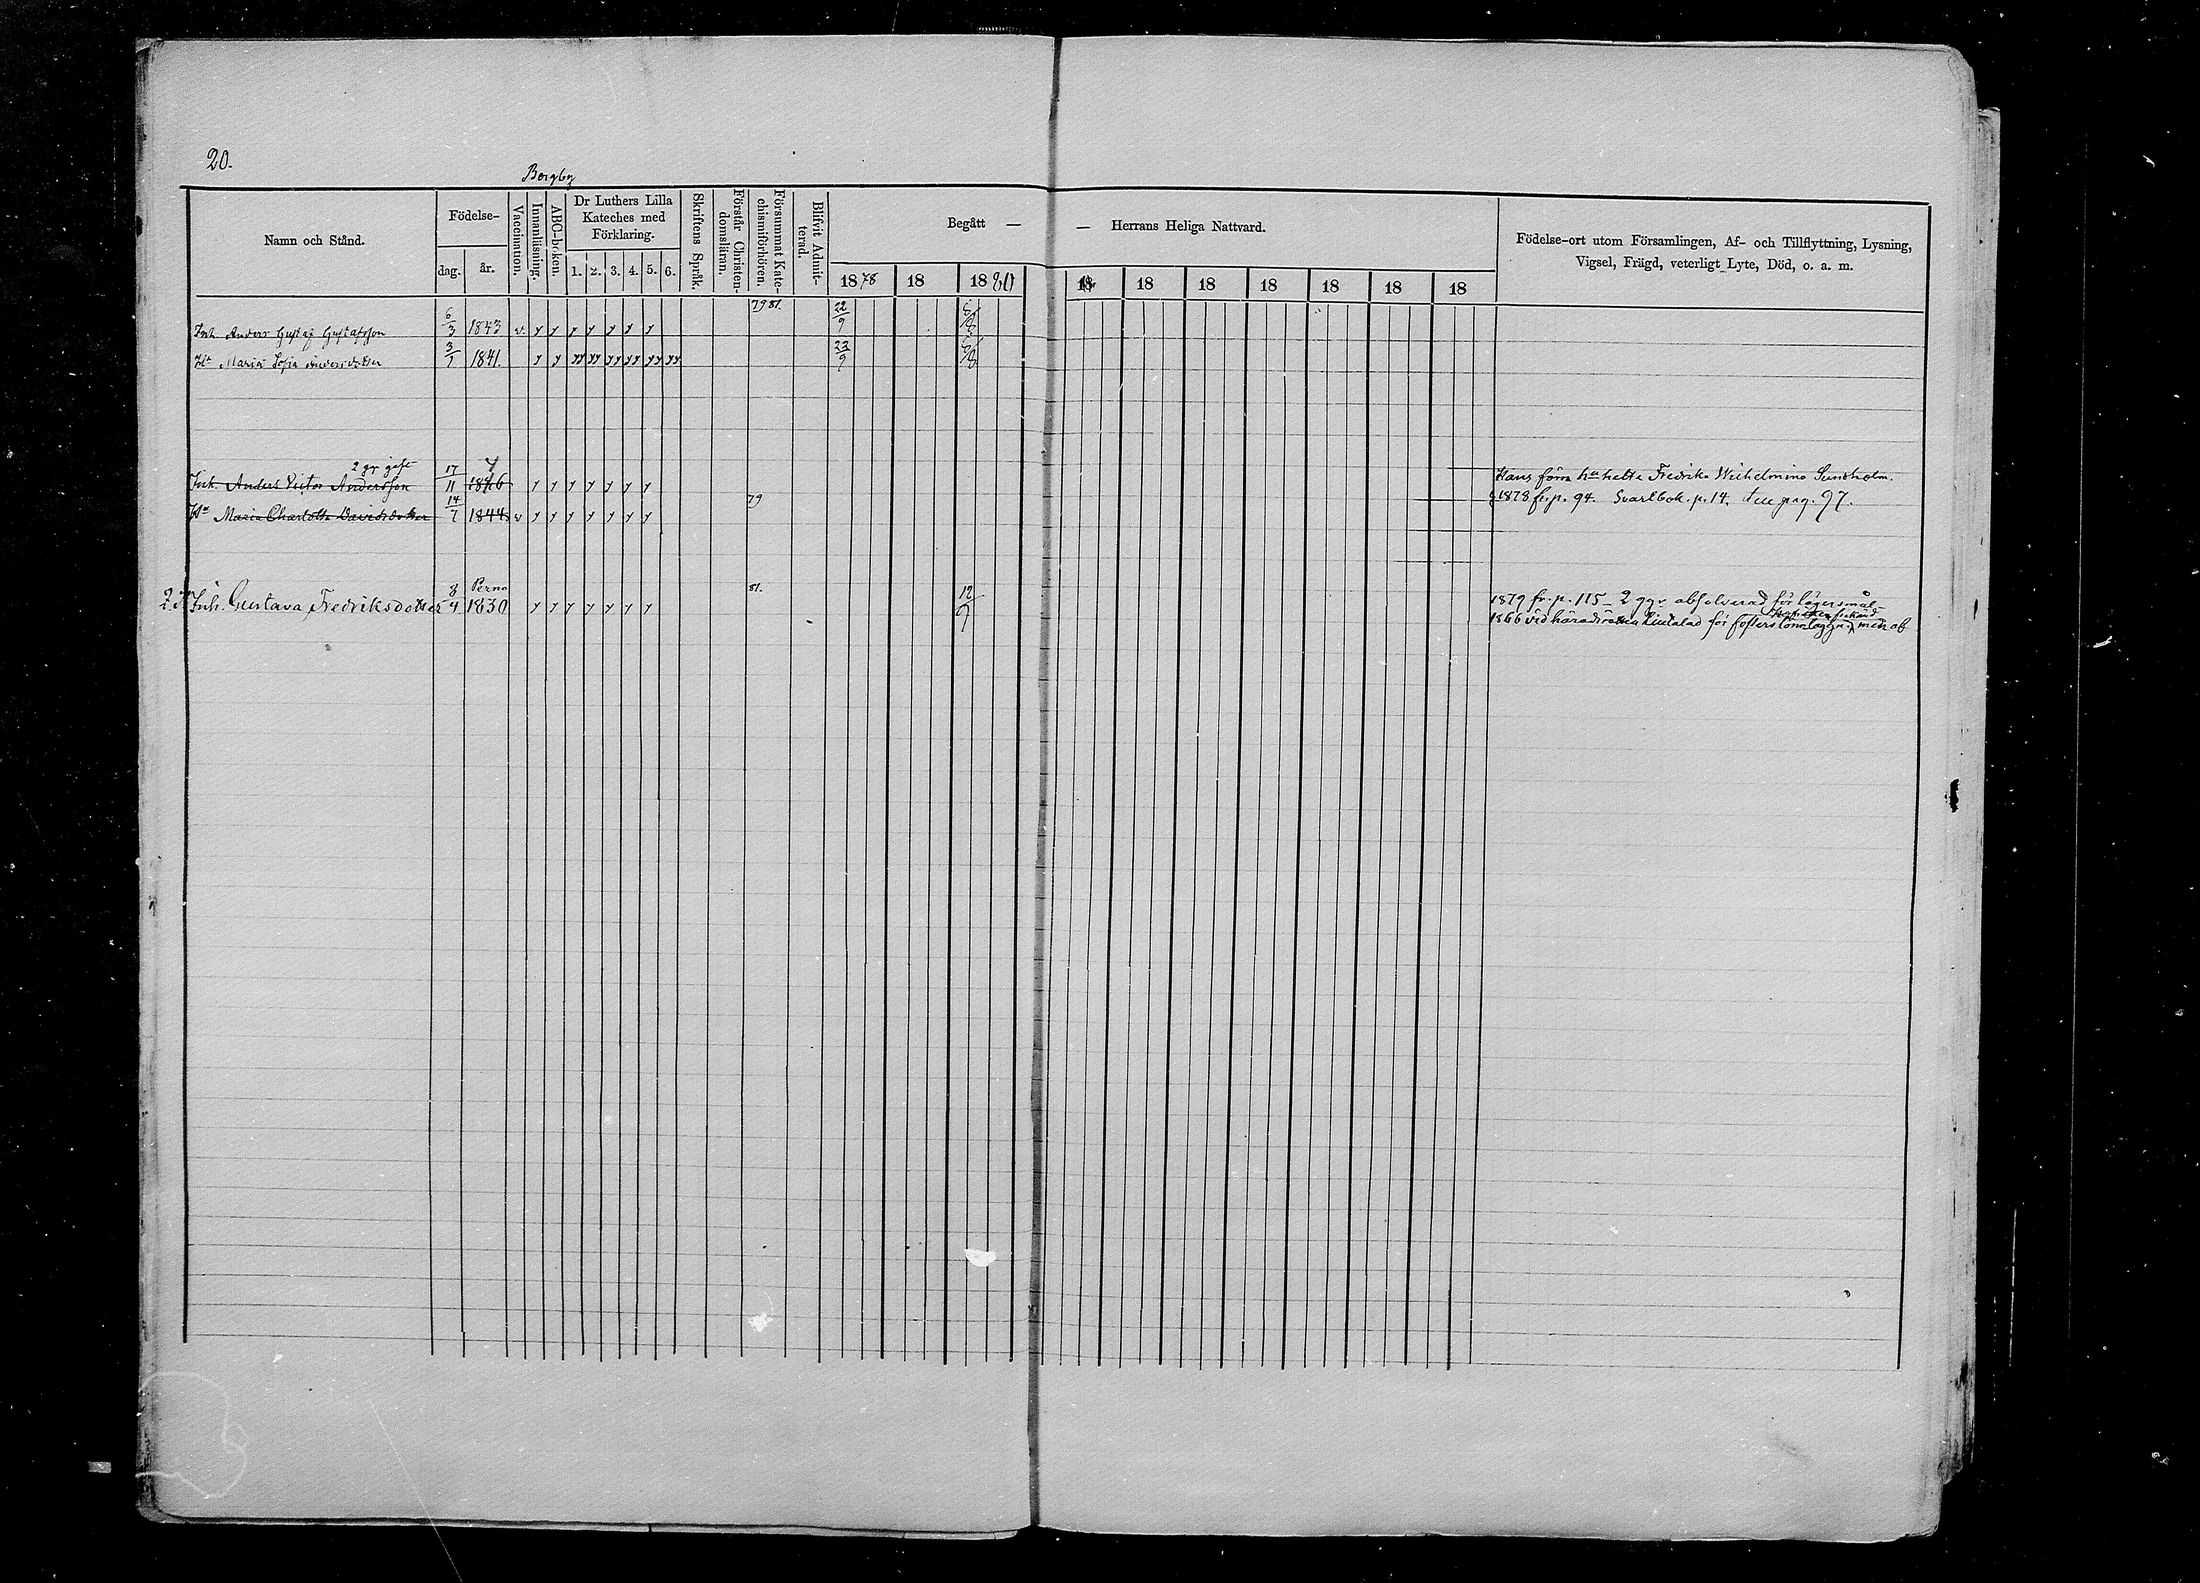 20.
Bergby
Namn och Stånd.
Födelse-
dag.
år.
Vaccination.
Innanläsning.
ABC-boken.
Dr Luthers Lilla
Kateches med
Förklaring.
1. 2. 3. 4. 5. 6.
Skriftens Språk.
Förstår Christen-
domsläran.
Försummat Kate-
chismiförhören.
Blifvit Admit-
terad.
Begått —
— Herrans Heliga Nattvard.
1878 18 1880 18 18 18 18 18 18 18
Födelse-ort utom Församlingen, Af- och Tillflyttning, Lysning,
Vigsel, Frägd, veterligt Lyte, Död, o. a. m.
Inh. Anders Gustaf Gustafsson 6/3 1843 v. y y y y y y y 79 81. 22/9
Hu Maria Sofia Andersdotter 3/1 1841. y y yy yy yy yy yy yy 23/9
2 gr gift
Inh. Anders Victor Andersson 17/11 y y y y y y y Hans förra hu hette Fredrika Wilhelmina Sundholm.
Hu Maria Charlotta Davidsdotter 14/7 1844 v y y y y y y y 79 1878 fr. p. 94. Svartbok. p. 14. pag. 97.
Perno
Inh. Gustava Fredriksdotter 8/4 1830 y y y y y y y 81. 12/9 1879 fr. p. 115 — 2 ggr absolverad för lägersmål
1866 vid häradsrätten för fosterslönnläggn. men